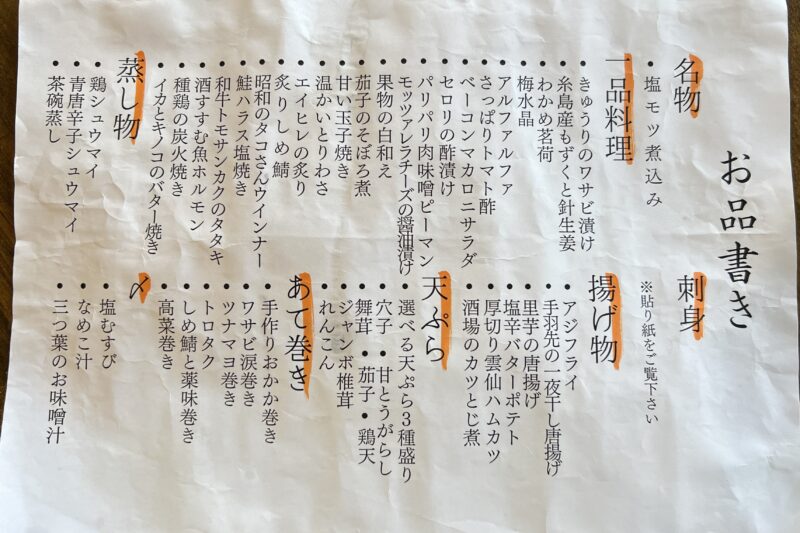 お品書き
名物
・塩モツ煮込み
一品料理
・きゅうりのワサビ漬け
・糸島産もずくと針生姜
・わかめ茗荷
・梅水晶
・アルファルファ
・さっぱりトマト酢
・ベーコンマカロニサラダ
・セロリの酢漬け
・パリパリ肉味噌ピーマン
・モッツァレラチーズの醤油漬け
・果物の白和え
・茄子のそぼろ煮
・甘い玉子焼き
・温かいとりわさ
・エイヒレの炙り
・炙りしめ鯖
・昭和のタコさんウインナー
・鮭ハラス塩焼き
・和牛トモサンカクのタタキ
・酒すすむ魚ホルモン
・種鶏の炭火焼き
・イカとキノコのバター焼き
蒸し物
・鶏シュウマイ
・青唐辛子シュウマイ
・茶碗蒸し
刺身
※貼り紙をご覧下さい
揚げ物
・アジフライ
・手羽先の一夜干し唐揚げ
・里芋の唐揚げ
・塩辛バターポテト
・厚切り雲仙ハムカツ
・酒場のカツとじ煮
天ぷら
・選べる天ぷら3種盛り
・穴子・甘とうがらし
・舞茸・茄子・鶏天
・ジャンボ椎茸
・れんこん
あて巻き
・手作りおかか巻き
・ワサビ涙巻き
・ツナマヨ巻き
・トロタク
・しめ鯖と薬味巻き
・高菜巻き
〆
・塩むすび
・なめこ汁
・三つ葉のお味噌汁